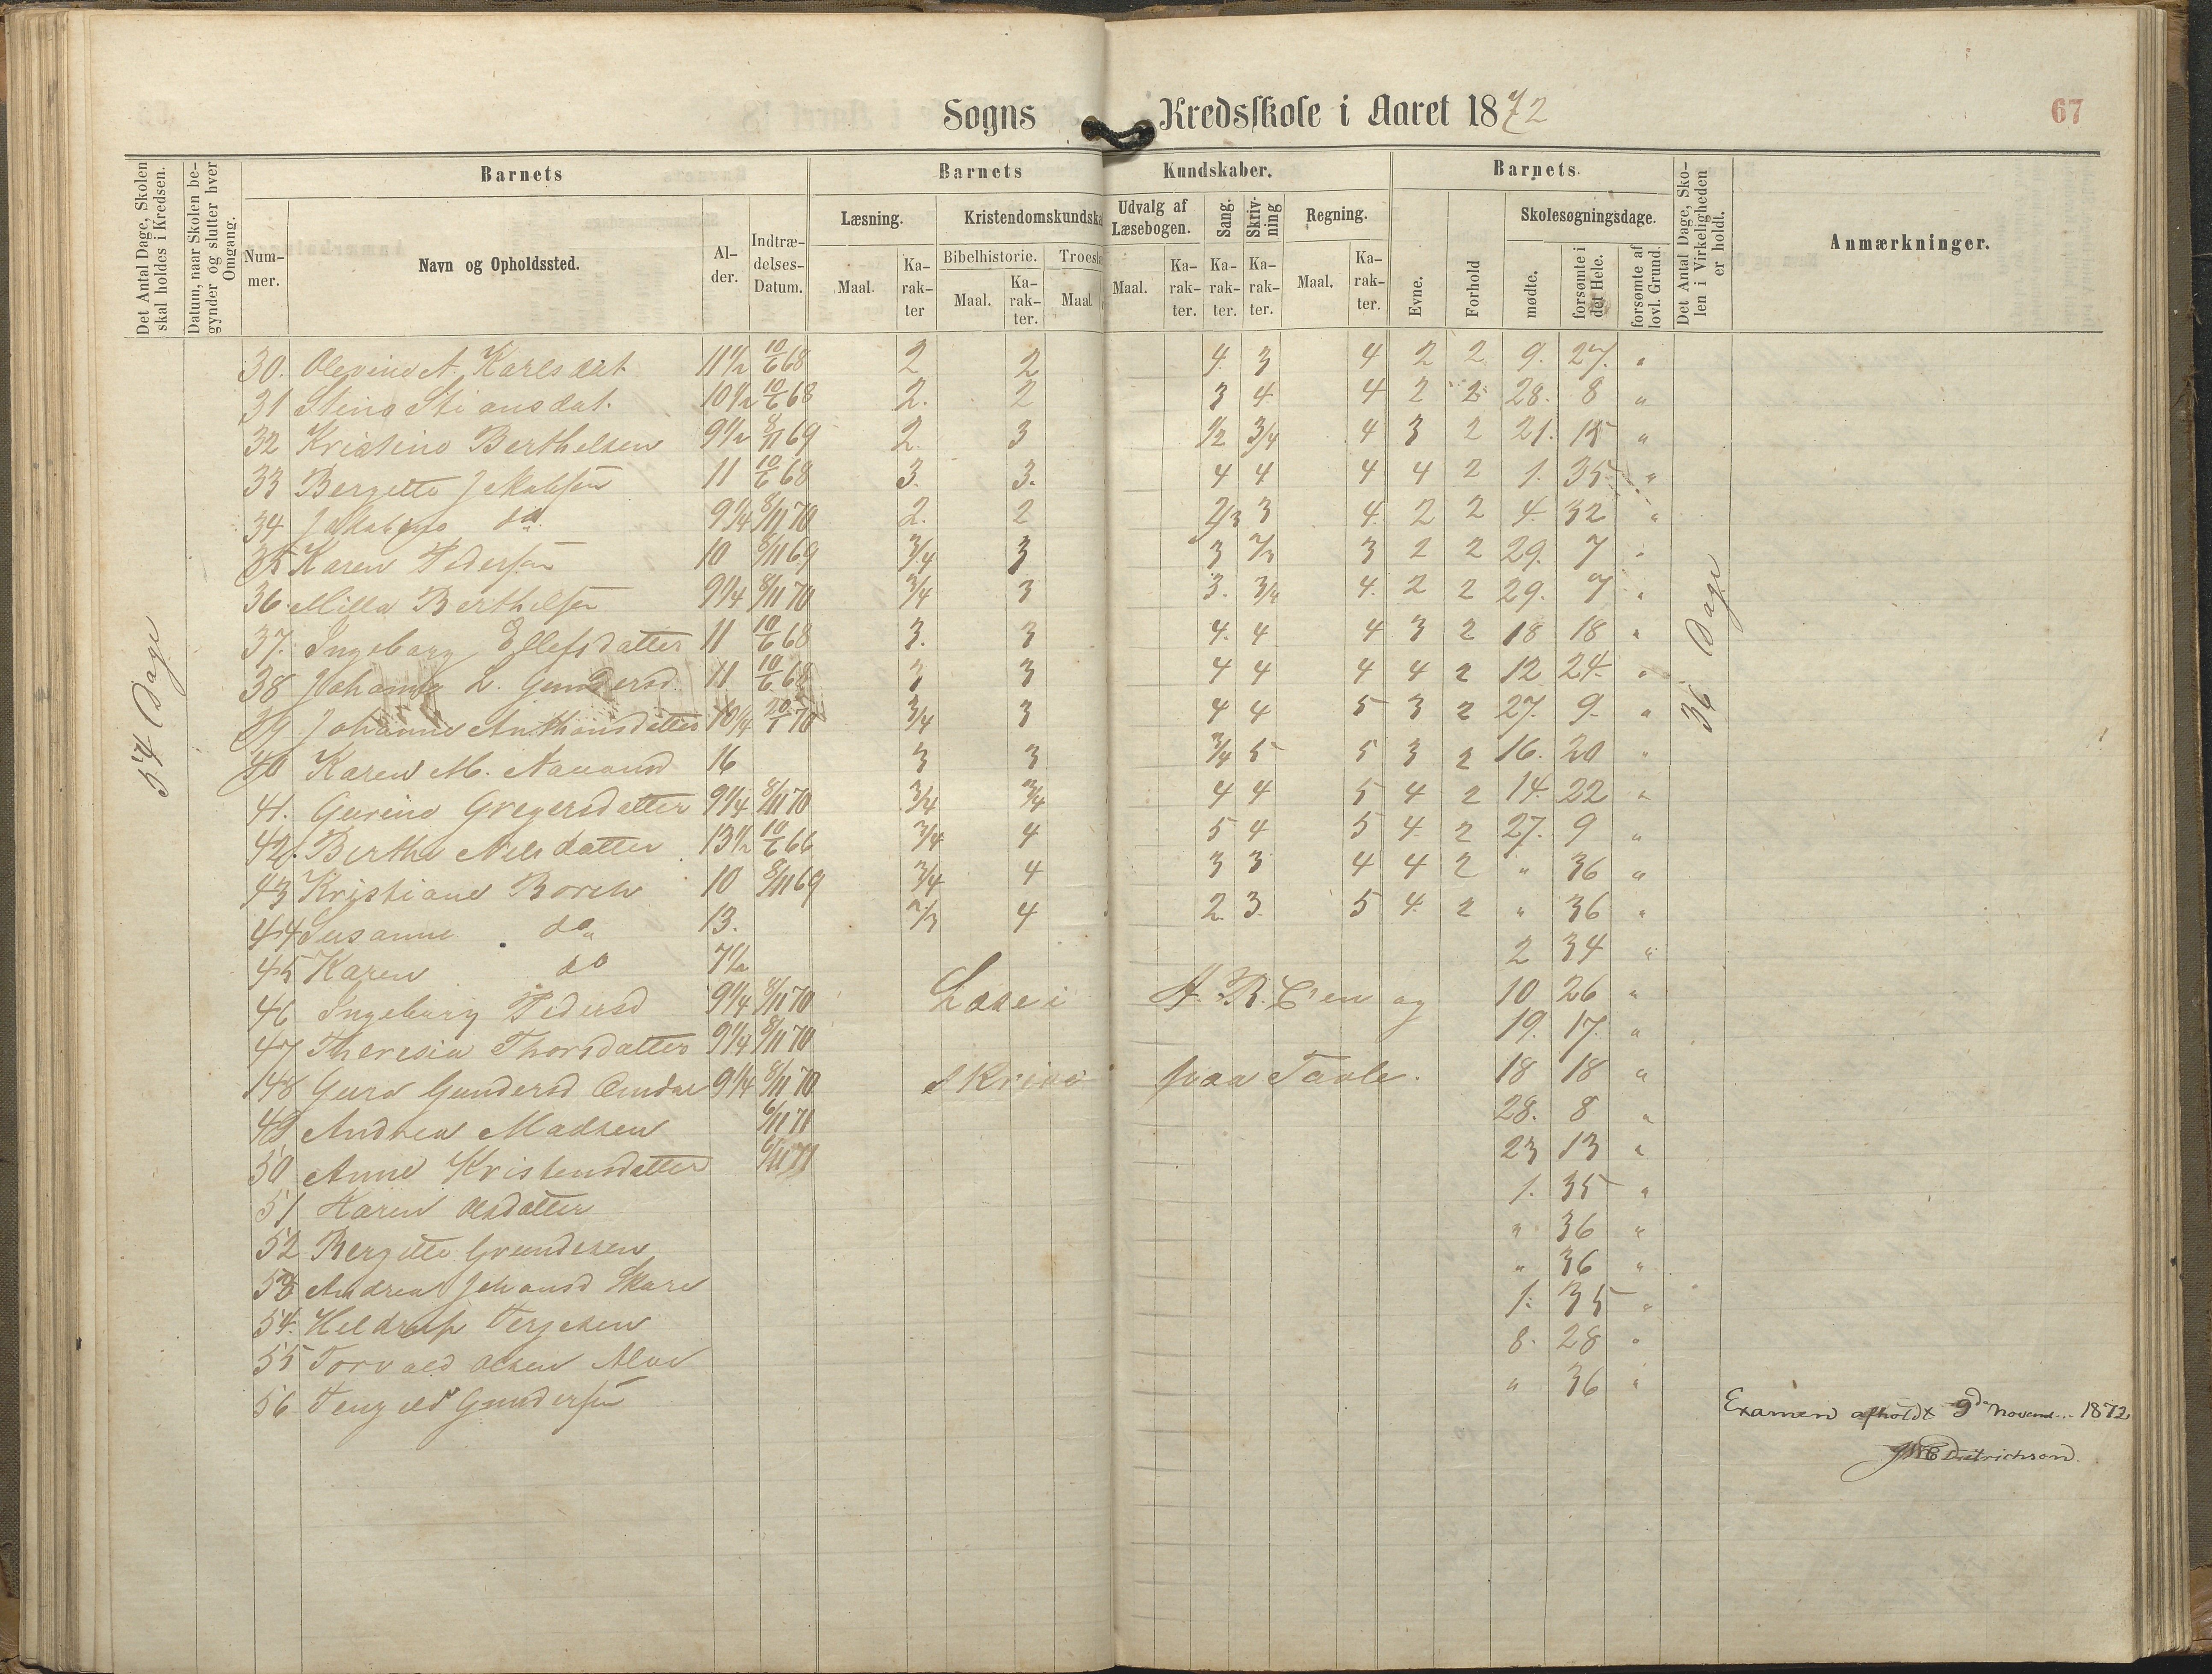 Sogns Kredsskole i Aaret 1872
67
Det Antal Dage, Skolen skal holdes i Kredsen.
Datum, naar Skolen begynder og slutter hver Omgang.
Barnets
Barnets Kundskaber.
Barnets
Det Antal Dage, Skolen i Virkeligheden er holdt.
Anmærkninger.
Nummer.
Navn og Opholdssted.
Alder.
Indtrædelses-Datum.
Læsning.
Kristendomskundska
Udvalg af Læsebogen.
Sang.
Skrivning
Regning.
Evne.
Forhold
Skolesøgningsdage.
Bibelhistorie.
Troesl
Maal.
Karakter
Maal.
Karakter.
Maal.
Maal.
Karakter.
Karakter.
Karakter.
Maal.
Karakter.
mødte.
forsømte i det Hele.
forsømte af lovl. Grund.
54 Dage
36 Dage
30. Olevine A. Karlsdat 11 1/2 10/6 68 2 2 4. 3 4 2 2 9. 27. "
31 Stine Stiansdat. 10 1/2 10/6 68 2. 2 3 4 4 2 2 28. 8 "
32 Kristine Berthelsen 9 1/2 8/11 69 2. 3 1/2 3/4 4 3 2 21. 15 "
33 Bergette Jakobsen 11 10/6 68 3. 3. 4 4 4 4 2 1. 35 "
34 Jakobine do 9 1/4 8/11 70 2. 2 2/3 3 4. 2 2 4. 32 "
35 Karen Pedersen 10 8/11 69 3/4 3 3 2/3 3 2 2 29. 7 "
36. Milla Berthelsen 9 1/4 8/11 70 3/4 3 3. 3/4 4. 2 2 29. 7 "
37. Ingeborg Ellefsdatter 11 10/6 68 3. 3 4. 4 4 3 2 18 18 "
38 Johanne L. Gundersd. 11 10/6 68 3 3 4 4 4 4 2 12 24. "
39 Johanne Anthonsdatter 10 1/4 3/4 3 4 4 5 3 2 27. 9. "
40 Karen M. Aanonsd 16 3 3 3/4 5 5 3 2 16. 20 "
41. Gurine Gregersdatter 9 1/4 8/11 70 3/4 3/4 4 4 5 4 2 14. 22 "
42. Berthe Nilsdatter 13 1/2 10/6 66 3/4 4 5 4 5 4. 2 27. 9 "
43 Kristiane Borch 10 8/11 69 3/4 4 3 3 4 4 2 " 36 "
44 Susanne do 13. 2/3 4 2. 3. 5 4. 2 " 36 "
45 Karen do 7 1/2 2 34 "
46 Ingeborg Pedersd 9 1/4 8/11 70 Læse i 10 26 "
47 Theresia Thorsdatter 9 1/4 8/11 70 19. 17. "
48 Guro Gundersd 9 1/4 8/11 70 Skrive paa Tavle. 18 18 "
49 Andrea Madsen 6/11 71 28. 8 "
50 Anne Kristensdatter 6/11 71 23 13 "
51 Karen Olsdatter 1. 35 "
52 Bergitte Grundesen " 36 "
53 Andrea Johansd Skare " 36 "
54. Terjesen 1. 35 "
55 Torvald Olsen 8. 28 "
56 Gundersen " 36 "
Examen afholdt 9d Novem... 1872
Dietrichson.